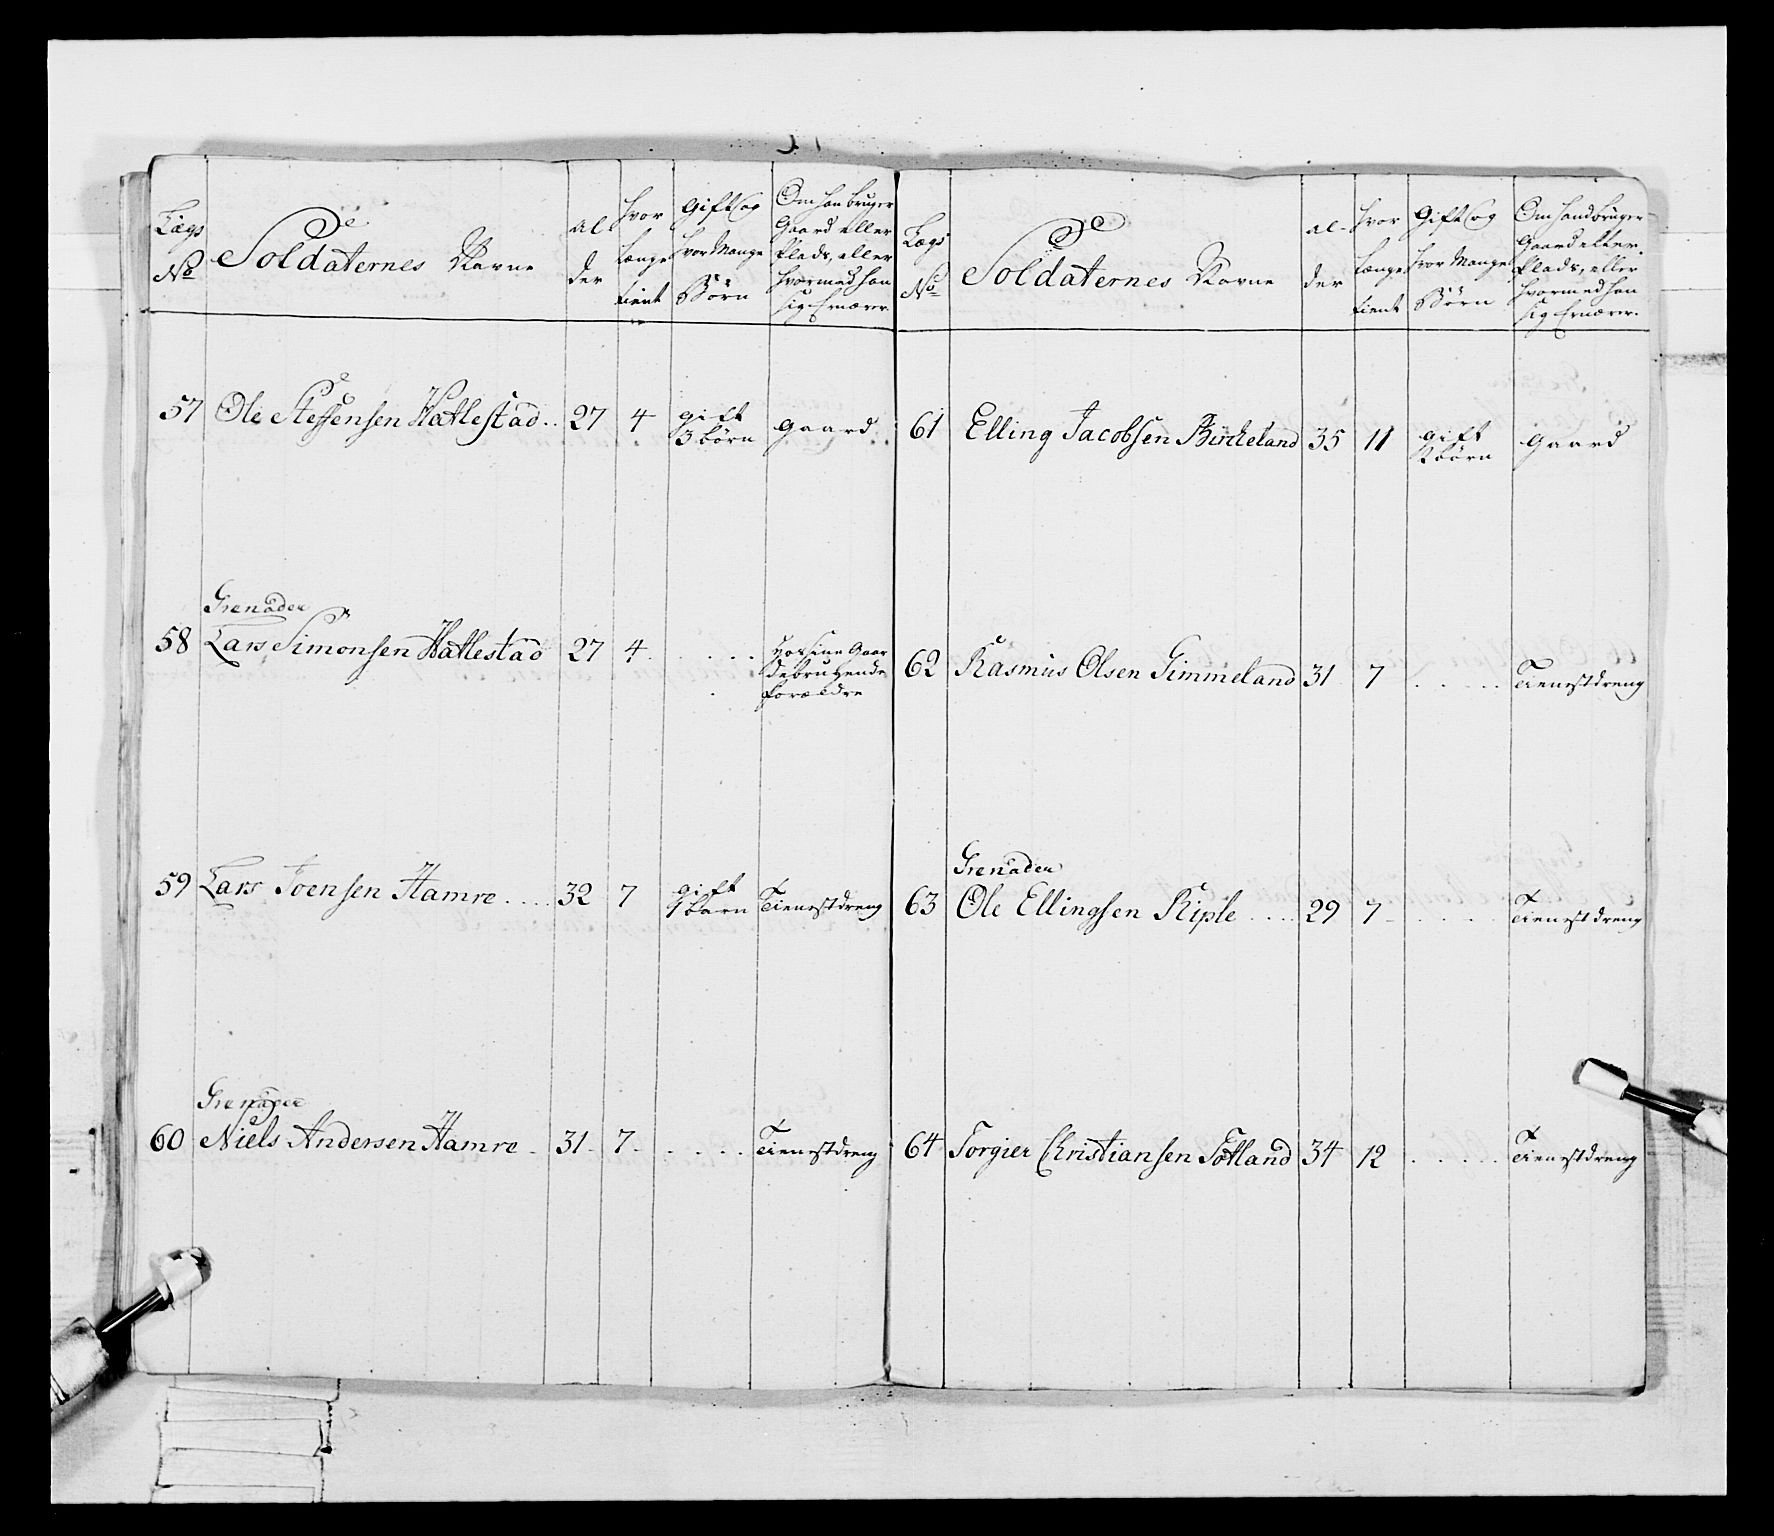 Lægs No | De Soldaternes Navne | al der | hvor længe tient | Gift og hvor Mange Börn | Om han bruger Gaard eller Plads, eller hvormed han sig Ernærer
57 | Ole Steffensen Hatlestad .. | 27 | 4 | gift 3 börn | gaard
Grenadeer
58 | Lars Simonsen Hatlestad | 27 | 4 | . . . . . | Hos sine Gaar debrugende forældre
59 | Lars Joensen Hamre .... | 32 | 7 | gift 1 barn | Tienestdreng
Grenadeer
60 | Niels Andersen Hamre . | 31 | 7 | . . . . . | Tienestdreng
Lægs No | De Soldaternes Navne | al- der | hvor længe tient | Gift og hvor Mange Börn | Om hand bruger Gaard eller Plads, eller hvormed han sig Ernærer.
61 | Elling Jacobsen Birckeland | 35 | 11 | gift börn | gaard
62 | Rasmus Olsen Gimmeland | 31 | 7 | . . . . . | Tienestdreng
Grenadeer
63 | Ole Ellingsen Riple .... | 29 | 7 | . . . . . | Tienestdreng
64 | Torgier Christiansen Totland | 34 | 12 | . . . . . | Tienestdreng